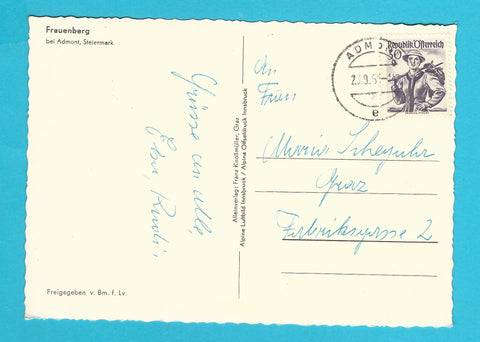 Frauenberg
bei Admont, Steiermark
Grüsse an alle,
Rudi
Freigegeben v. Bm. f. Lv.
Alleinverlag: Franz Knollmüller, Graz
Alpine Luftbild Innsbruck / Alpine Offsetdruck Innsbruck
ADMONT
e
Republik Österreich
An
Graz
Fabriksgasse 2